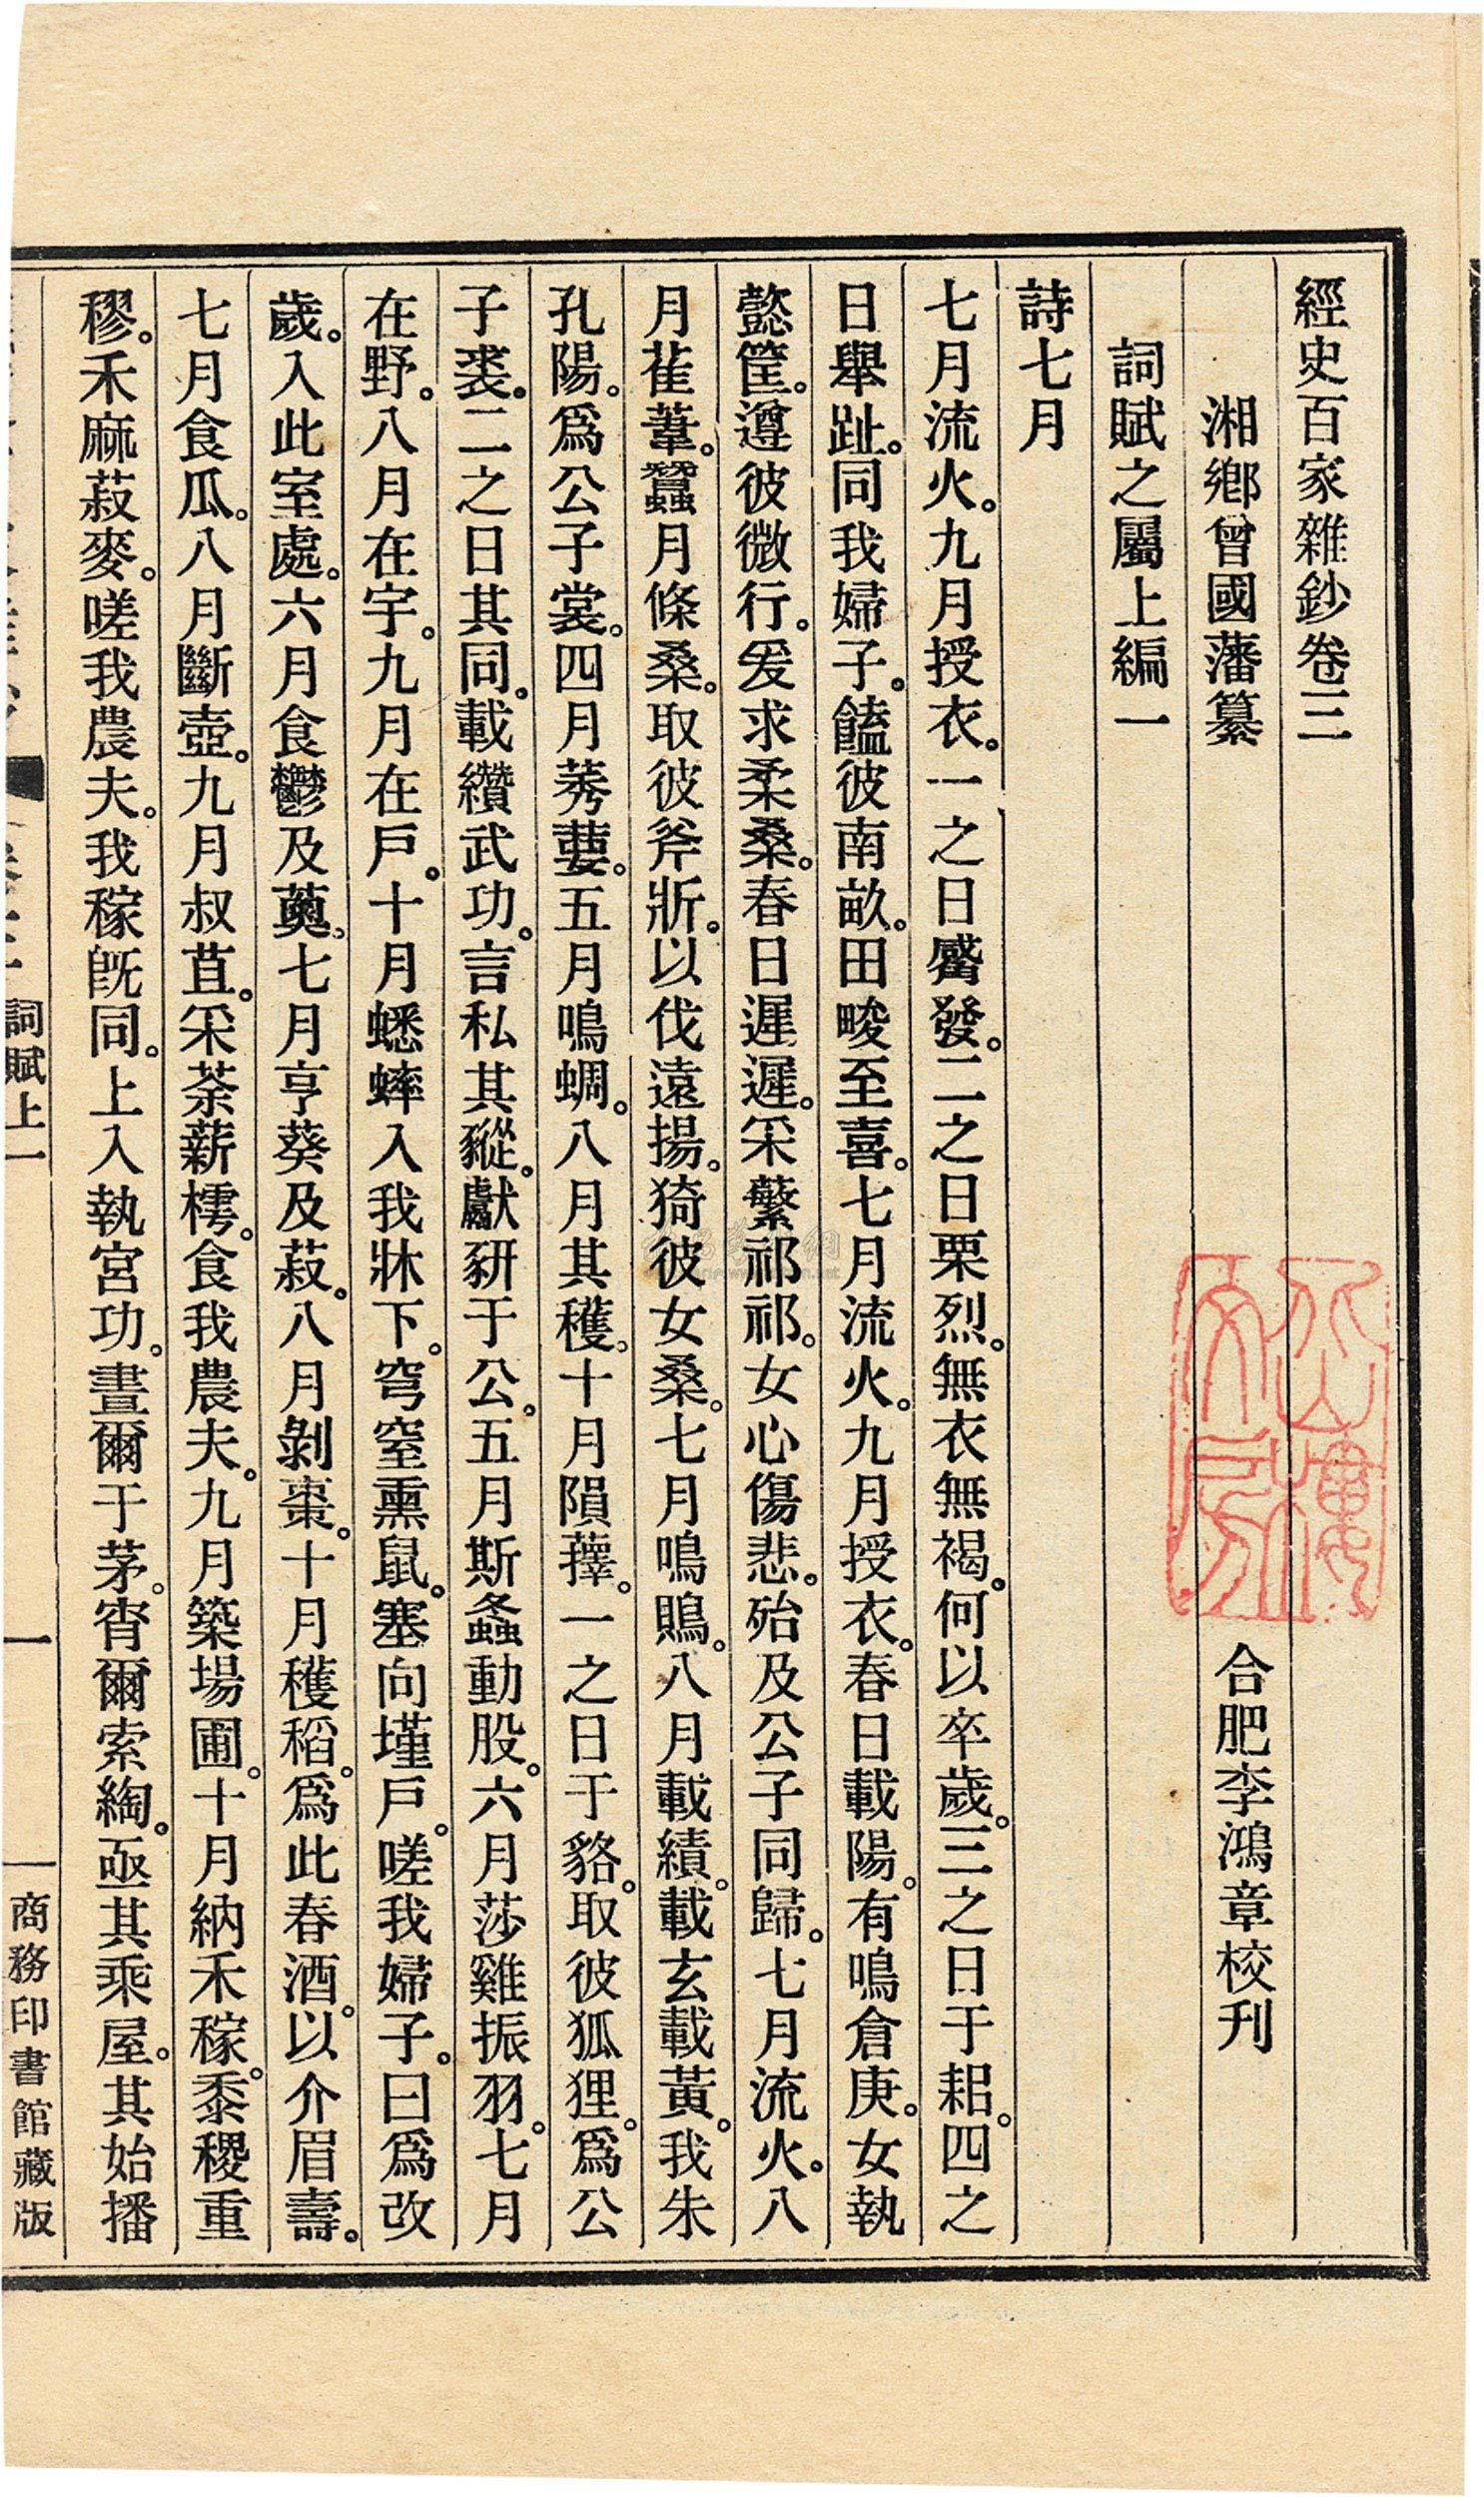 經史百家雜鈔卷三
湘鄉曾國藩纂 合肥李鴻章校刊
詞賦之屬上編一
詩七月
七月流火。九月授衣。一之日觱發。二之日栗烈。無衣無褐。何以卒歲。三之日于耜。四之
日舉趾。同我婦子。饁彼南畝。田畯至喜。七月流火。九月授衣。春日載陽。有鳴倉庚。女執
懿筐。遵彼微行。爰求柔桑。春日遲遲。采蘩祁祁。女心傷悲。殆及公子同歸。七月流火。八
月萑葦。蠶月條桑。取彼斧斨。以伐遠揚。猗彼女桑。七月鳴鵙。八月載績。載玄載黃。我朱
孔陽。爲公子裳。四月莠葽。五月鳴蜩。八月其穫。十月隕蘀。一之日于貉。取彼狐狸。爲公
子裘。二之日其同。載纘武功。言私其豵。獻豜于公。五月斯螽動股。六月莎雞振羽。七月
在野。八月在宇。九月在戶。十月蟋蟀入我牀下。穹窒熏鼠。塞向墐戶。嗟我婦子。曰爲改
歲。入此室處。六月食鬱及薁。七月亨葵及菽。八月剝棗。十月穫稻。爲此春酒。以介眉壽。
七月食瓜。八月斷壺。九月叔苴。采荼薪樗。食我農夫。九月築場圃。十月納禾稼。黍稷重
穋。禾麻菽麥。嗟我農夫。我稼旣同。上入執宮功。晝爾于茅。宵爾索綯。亟其乘屋。其始播
詞賦上一 一 商務印書館藏版